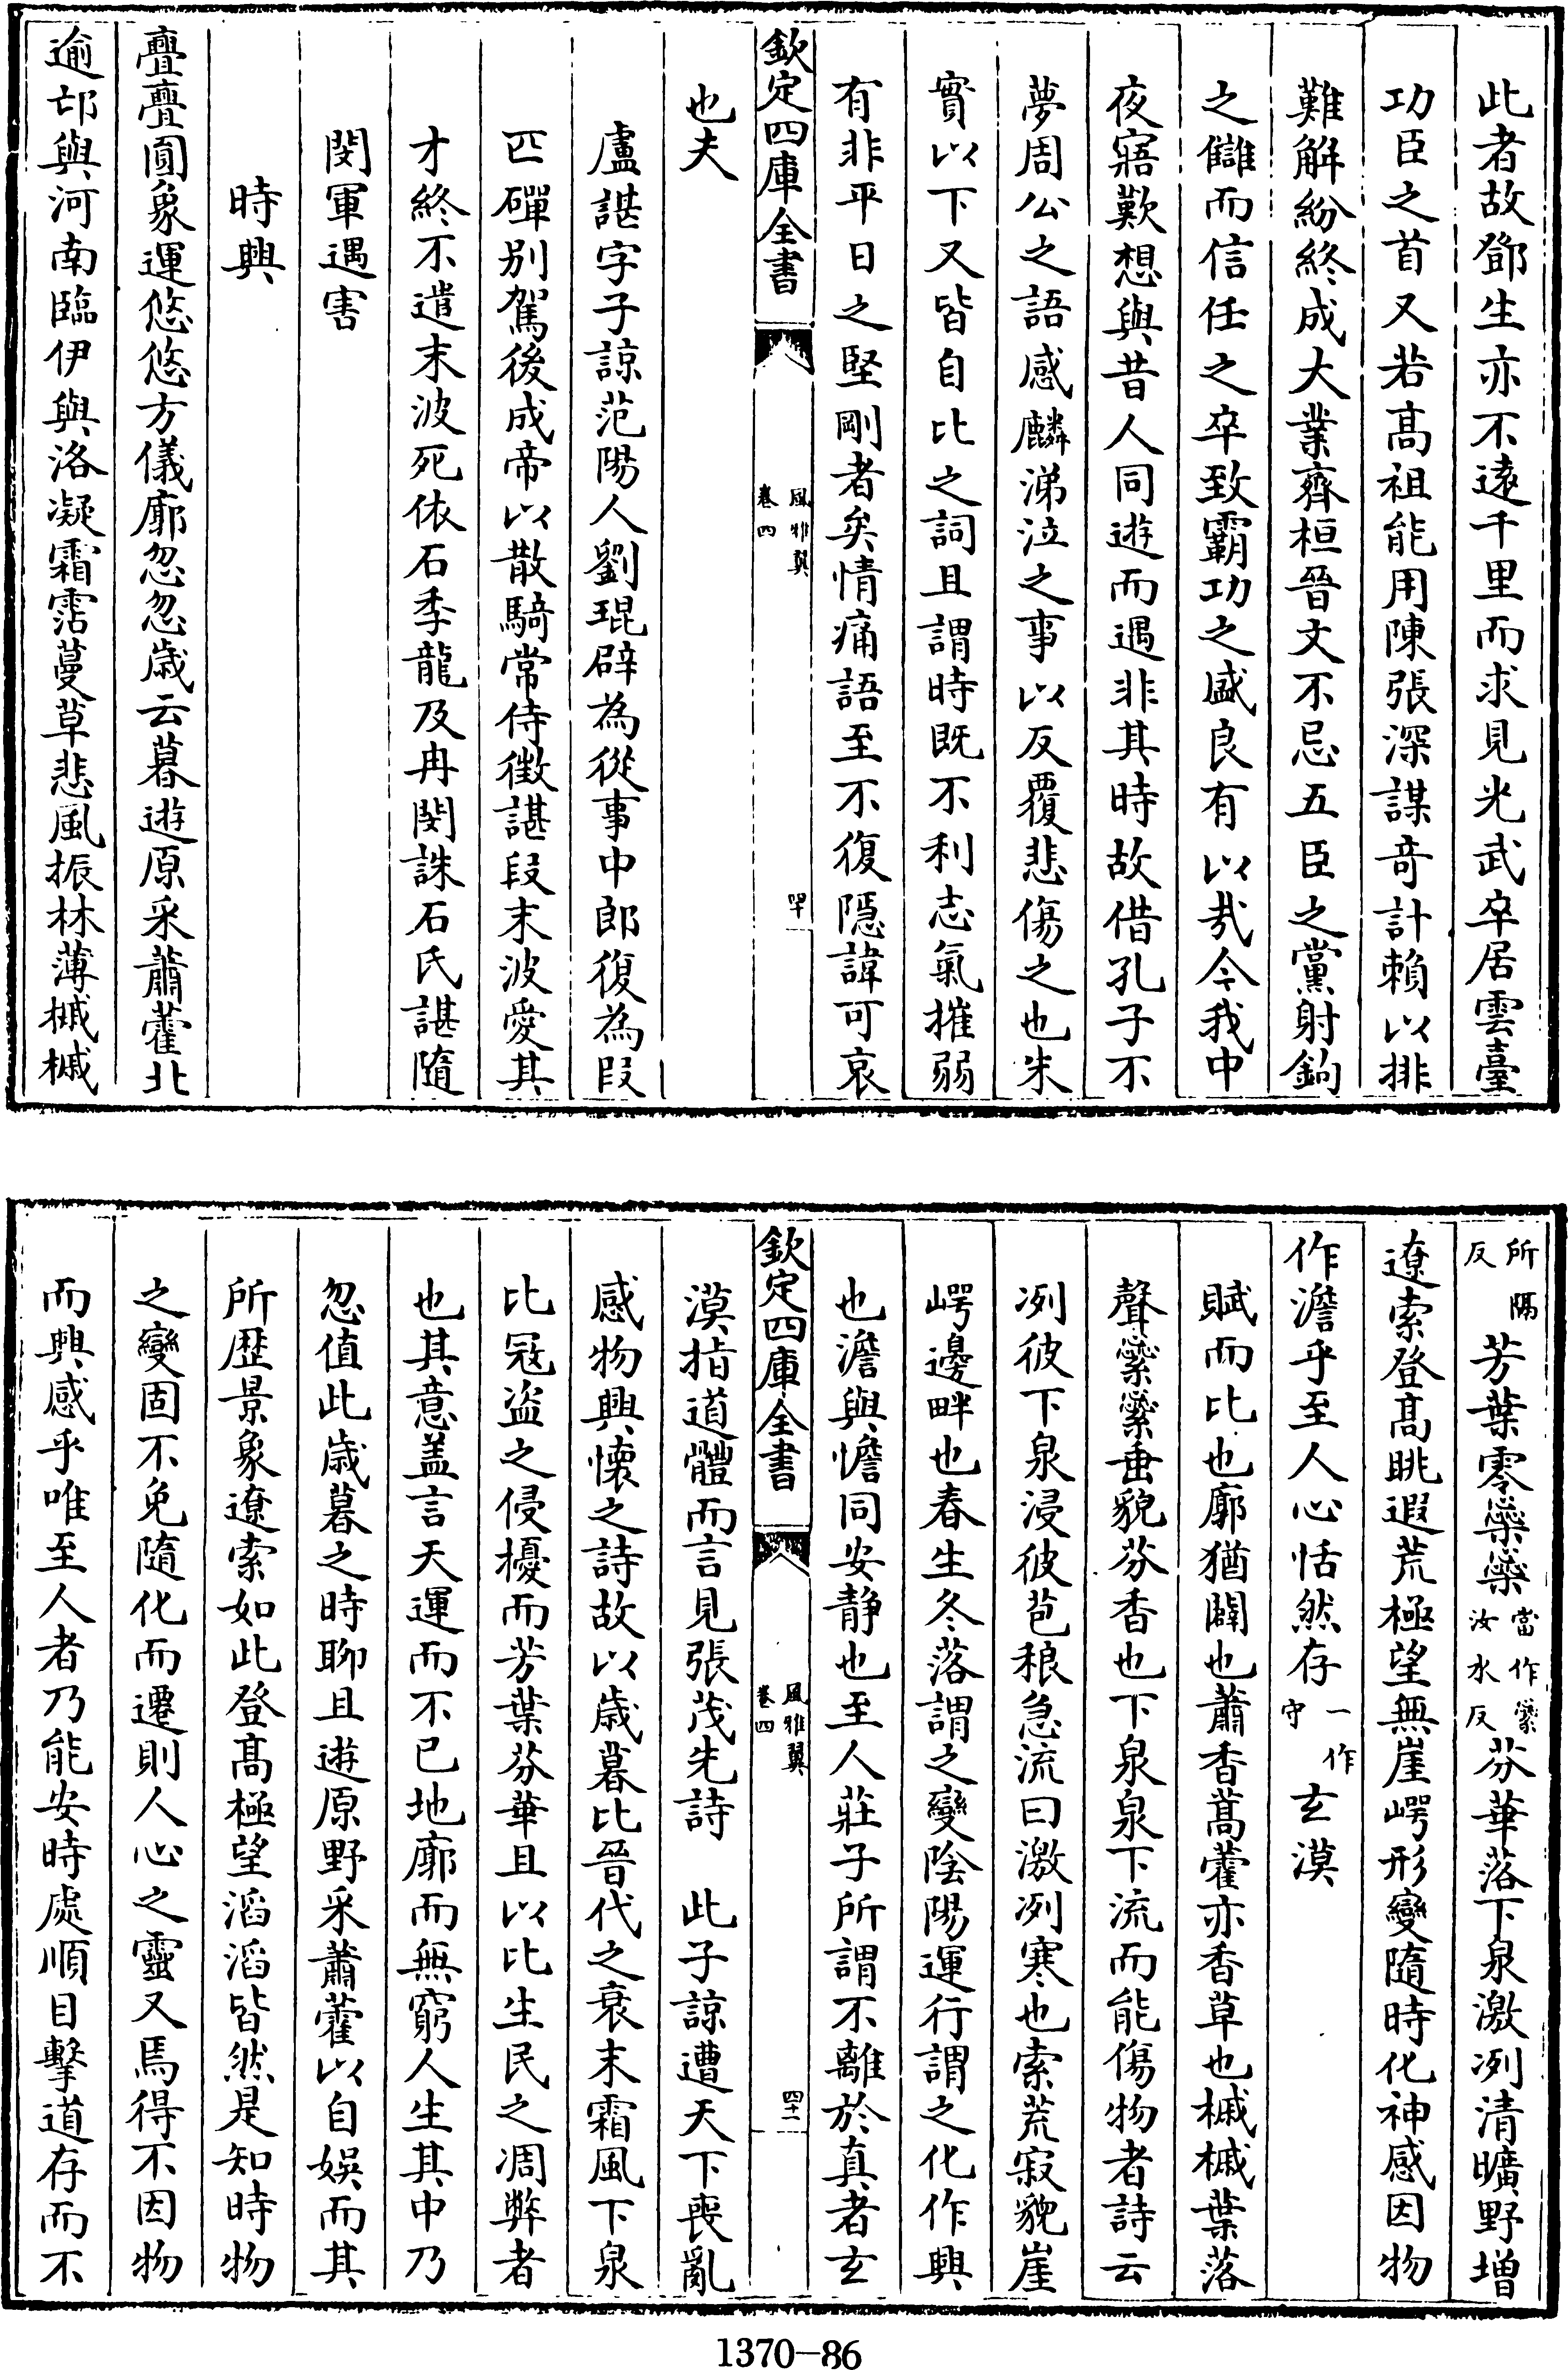 此者故鄧生亦不逺千里而求見光武卒居雲臺
功臣之首又若髙祖能用陳張深謀竒計頼以排
難解紛終成大業齊桓晉文不忌五臣之黨射鉤
之讎而信任之卒致霸功之盛良有以哉今我中
夜寤歎想與昔人同遊而遇非其時故借孔子不
夢周公之語感麟涕泣之事以反覆悲傷之也朱
實以下又皆自比之詞且謂時既不利志氣摧弱
有非平日之堅剛者矣情痛語至不復隠諱可哀
欽定四庫全書
風雅翼
卷四
四十
也夫
盧諶字子諒范陽人劉琨辟為從事中郎復為段
匹磾别駕後成帝以散騎常侍徵諶段末波愛其
才終不遣末波死依石季龍及冉閔誅石氏諶隨
閔軍遇害
時興
亹亹圓象運悠悠方儀廓忽忽歳云暮遊原采蕭藿北
逾邙與河南臨伊與洛凝霜霑蔓草悲風振林薄槭槭
所隔
反
芳葉零橤橤
當作繠
汝水反
芬華落下泉激冽清曠野増
遼索登髙眺遐荒極望無崖崿形變隨時化神感因物
作澹乎至人心恬然存
一作
守
玄漠
賦而比也廓猶闢也蕭香蒿藿亦香草也槭槭葉落
聲繠繠垂貌芬香也下泉泉下流而能傷物者詩云
冽彼下泉浸彼苞稂急流曰激冽寒也索荒寂貌崖
崿邊畔也春生冬落謂之變隂陽運行謂之化作興
也澹與憺同安静也至人莊子所謂不離於真者玄
欽定四庫全書
風雅翼
卷四
四十一
漠指道體而言見張茂先詩　此子諒遭天下喪亂
感物興懐之詩故以歳暮比晉代之衰末霜風下泉
比冦盗之侵擾而芳葉芬華且以比生民之凋弊者
也其意盖言天運而不已地廓而無窮人生其中乃
忽值此歳暮之時聊且遊原野采蕭藿以自娯而其
所歴景象遼索如此登髙極望滔滔皆然是知時物
之變固不免隨化而遷則人心之靈又焉得不因物
而興感乎唯至人者乃能安時處順目擊道存而不
1370-86